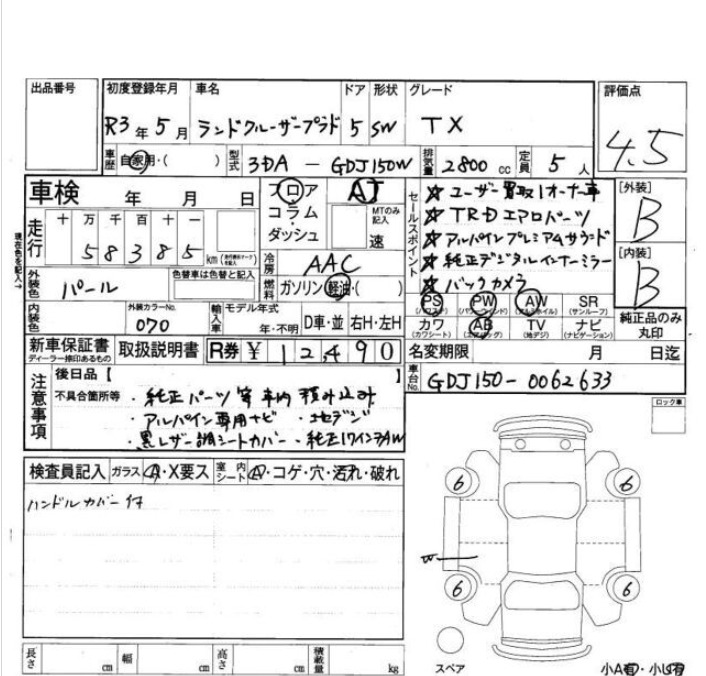 出品番号 初度登録年月 車名 ドア 形状 グレード 評価点
R3年5月 ランドクルーザープラド 5 SW TX 4.5
車歴 自家用・( ) 型式 3DA - GDJ150W 排気量 2800 cc 定員 5人
車検 年 月 日 フロア AT
コラム MTのみ記入
ダッシュ 速
現在色を記入→
走行 十 万 千 百 十 一
5 8 3 8 5 km
冷房 AAC
外装色 パール 色替車は色替と記入 燃料 ガソリン・軽油・( )
内装色 外装カラーNo. 070 輸入車 モデル年式 年・不明 D車・並 右H・左H
セールスポイント
☆ ユーザー買取1オーナー車
☆ TRDエアロパーツ
☆ アルパインプレミアムサウンド
☆ 純正デジタルインナーミラー
☆ バックカメラ
[外装] B
[内装] B
PS (パワステ) PW (パワーウィンド) AW (アルミホイル) SR (サンルーフ)
カワ (カワシート) AB (エアバッグ) TV (地デジ) ナビ (ナビゲーション)
純正品のみ丸印
新車保証書 ディーラー捺印あるもの 取扱説明書 R券 ¥ 12,490
名変期限 月 日迄
車台No. GDJ150-0062633
注意事項 後日品【 】
不具合箇所等 ・純正パーツ等車内積み込み
・アルパイン専用ナビ ・地デジ
・黒レザー調シートカバー ・純正17インチAW
ロック車
検査員記入 ガラス A・X要ス 室内シート A・コゲ・穴・汚れ・破れ
ハンドルカバー付
6 6
W
6 6
スペア
長さ cm 幅 cm 高さ cm 積載量 kg
小A有・小U有